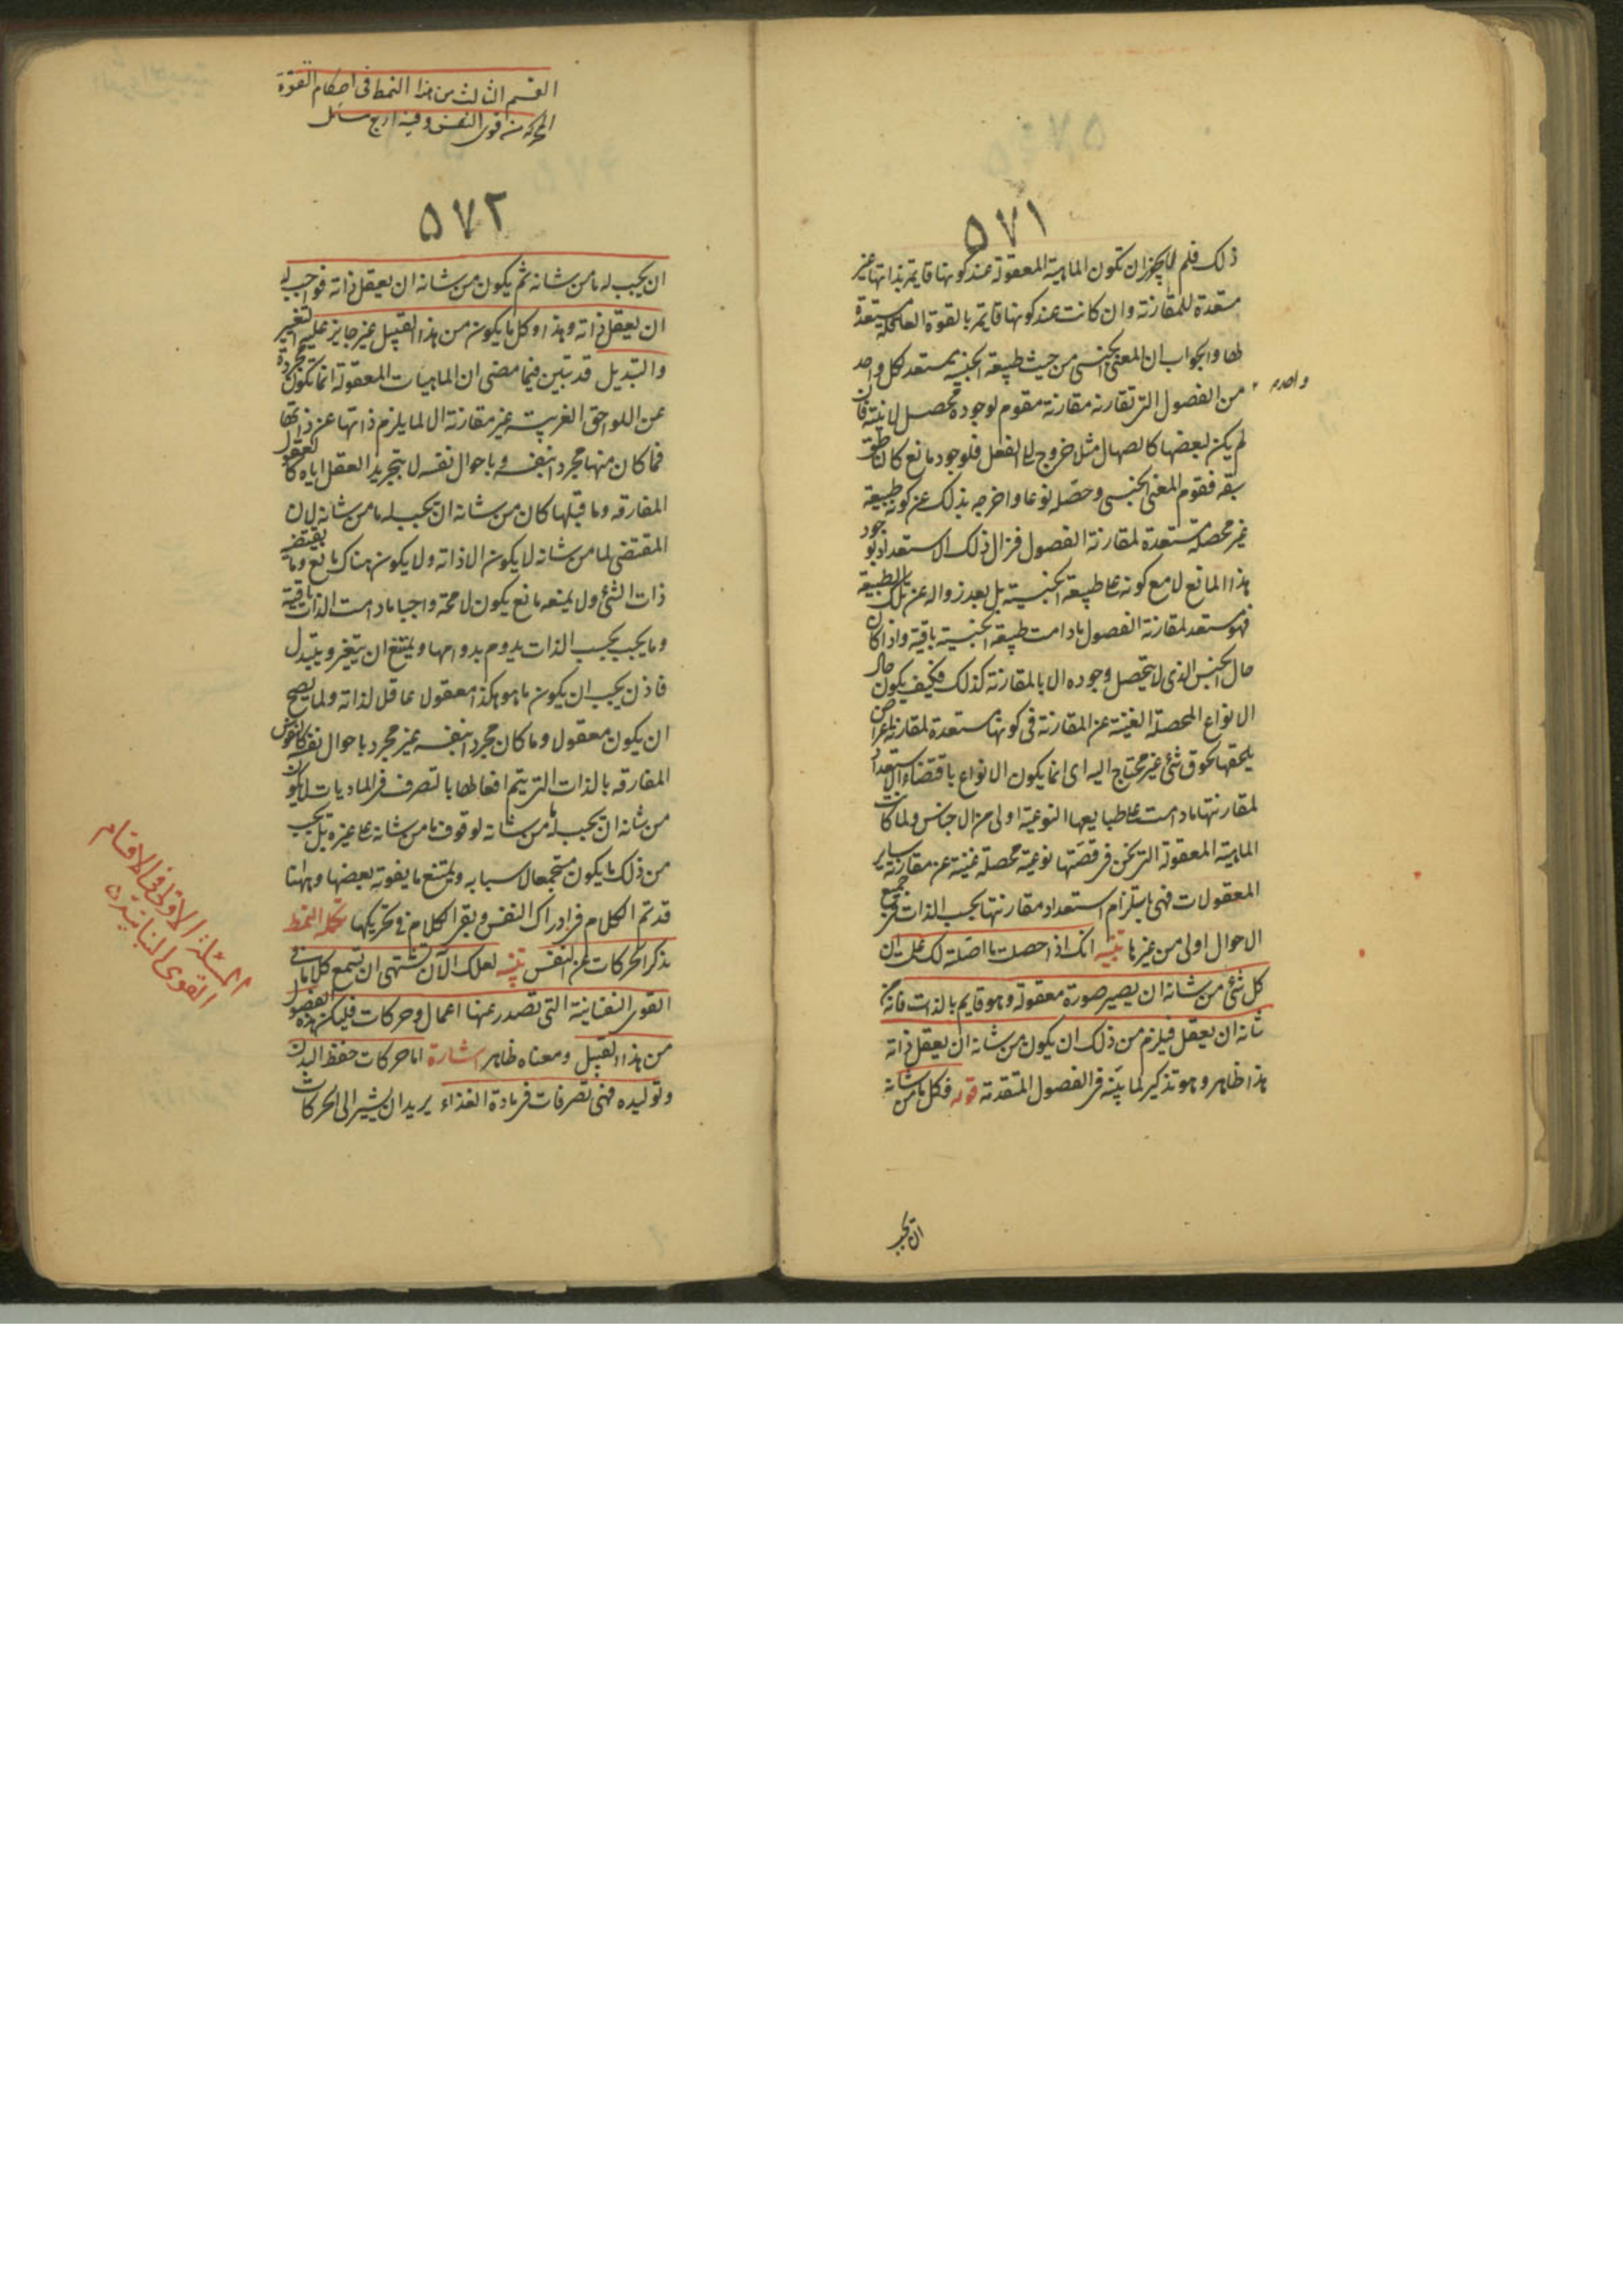 ٥٧١
ذلك فلم لا يجوز ان تكون الماهية المعقولة عند كونها قايمة بذاتها غير
مستعدة للمقارنة وان كانت عند كونها قايمة بالقوة العاقلة مستعدة
لها والجواب ان المعنى الجنسى من حيث طبيعته الجنسية يستعد لكل واحد
واحد م
من الفصول التى تقارنه مقارنة مقوم لوجوده محصل لانيته فان
لم يكن لبعضها كالصهال مثلا خروج الى الفعل فلوجود مانع كالناطق
سبقه فقوم المعنى الجنسى وحصله نوعا واخرجه بذلك عن كونه طبيعة
غير محصلة مستعدة لمقارنة الفصول فزال ذلك الاستعداد بوجود
هذا المانع لا مع كونه على طبيعته الجنسية بل بعد زواله عن تلك الطبيعة
فهو مستعد لمقارنة الفصول ما دامت طبيعته الجنسية باقية واذا كان
حال الجنس الذى لا يتحصل وجوده الا بالمقارنة كذلك فكيف يكون حال
الانواع المحصلة الغنية عن المقارنة فى كونها مستعدة لمقارنة اعراض
يلحقها لحوق شئ غير محتاج اليه اى انما يكون الانواع باقتضاء الاستعداد
لمقارنتها ما دامت على طبايعها النوعية اولى من الاجناس ولما كانت
الماهية المعقولة التى نحن فى قصتها نوعية محصلة غنية عن مقارنة ساير
المعقولات فهى باستلزام استعداد مقارنتها بحسب الذات فى جميع
الاحوال اولى من غيرها تنبيه انك اذا حصلت ما اصلته لك علمت ان
كل شئ من شانه ان يصير صورة معقولة وهو قايم بالذات فانه من
شانه ان يعقل فيلزم من ذلك ان يكون من شانه ان يعقل ذاته
هذا ظاهر وهو تذكير لما بينه فى الفصول المتقدمة قوله فكل ما من شانه
ان يجب
القسم الثالث من هذا النمط فى احكام القوة
المحركة من قوى النفس وفيه اربع مسائل
٥٧٢
ان يجب له ما من شانه ثم يكون من شانه ان يعقل ذاته فواجب له
ان يعقل ذاته وهذا وكل ما يكون من هذا القبيل غير جايز عليه التغيير
والتبديل قد تبين فيما مضى ان الماهيات المعقولة انما تكون مجردة
عن اللواحق الغريبة غير مقارنة الا لما يلزم ذاتها عن ذاتها
فما كان منها مجردا بنفسه وباحوال نفسه لا بتجريد العقل اياه كالعقول
المفارقة وما قبلها كان من شانه ان يجب له ما من شانه لان
المقتضى لما من شانه لا يكون الا ذاته ولا يكون هناك مانع وما يقتضيه
ذات الشئ ولا يمنعه مانع يكون لا محة واجبا ما دامت الذات باقية
وما يجب بحسب الذات يدوم بدوامها ويمتنع ان يتغير ويتبدل
فاذن يجب ان يكون ما هو هكذا معقولا عاقلا لذاته ولما يصح
ان يكون معقولا وما كان مجردا بنفسه غير مجرد باحوال نفسه كالنفوس
المفارقة بالذات التى يتم افعالها بالتصرف فى الماديات لا يكون
من شانه ان يجب له ما من شانه لوقوف ما من شانه على غيره بل يجب
من ذلك ما يكون مستجمعا لاسبابه ويمتنع ما يفوته بعضها وههنا
قد تم الكلام فى ادراك النفس وبقى الكلام فى تحريكها تكملة النمط
بذكر الحركات عن النفس تنبيه لعلك الآن تشتهى ان تسمع كلاما فى
القوى النفسانية التى تصدر عنها اعمال وحركات فليكن هذه الفصول
من هذا القبيل ومعناه ظاهر اشارة اما حركات حفظ البدن
وتوليده فهى تصرفات فى مادة الغذاء يريد ان يشير الى الحركات
المسئلة الاولى فى الاقسام
القوى النباتية